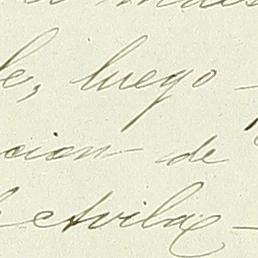 le, luego
cion de
Avila